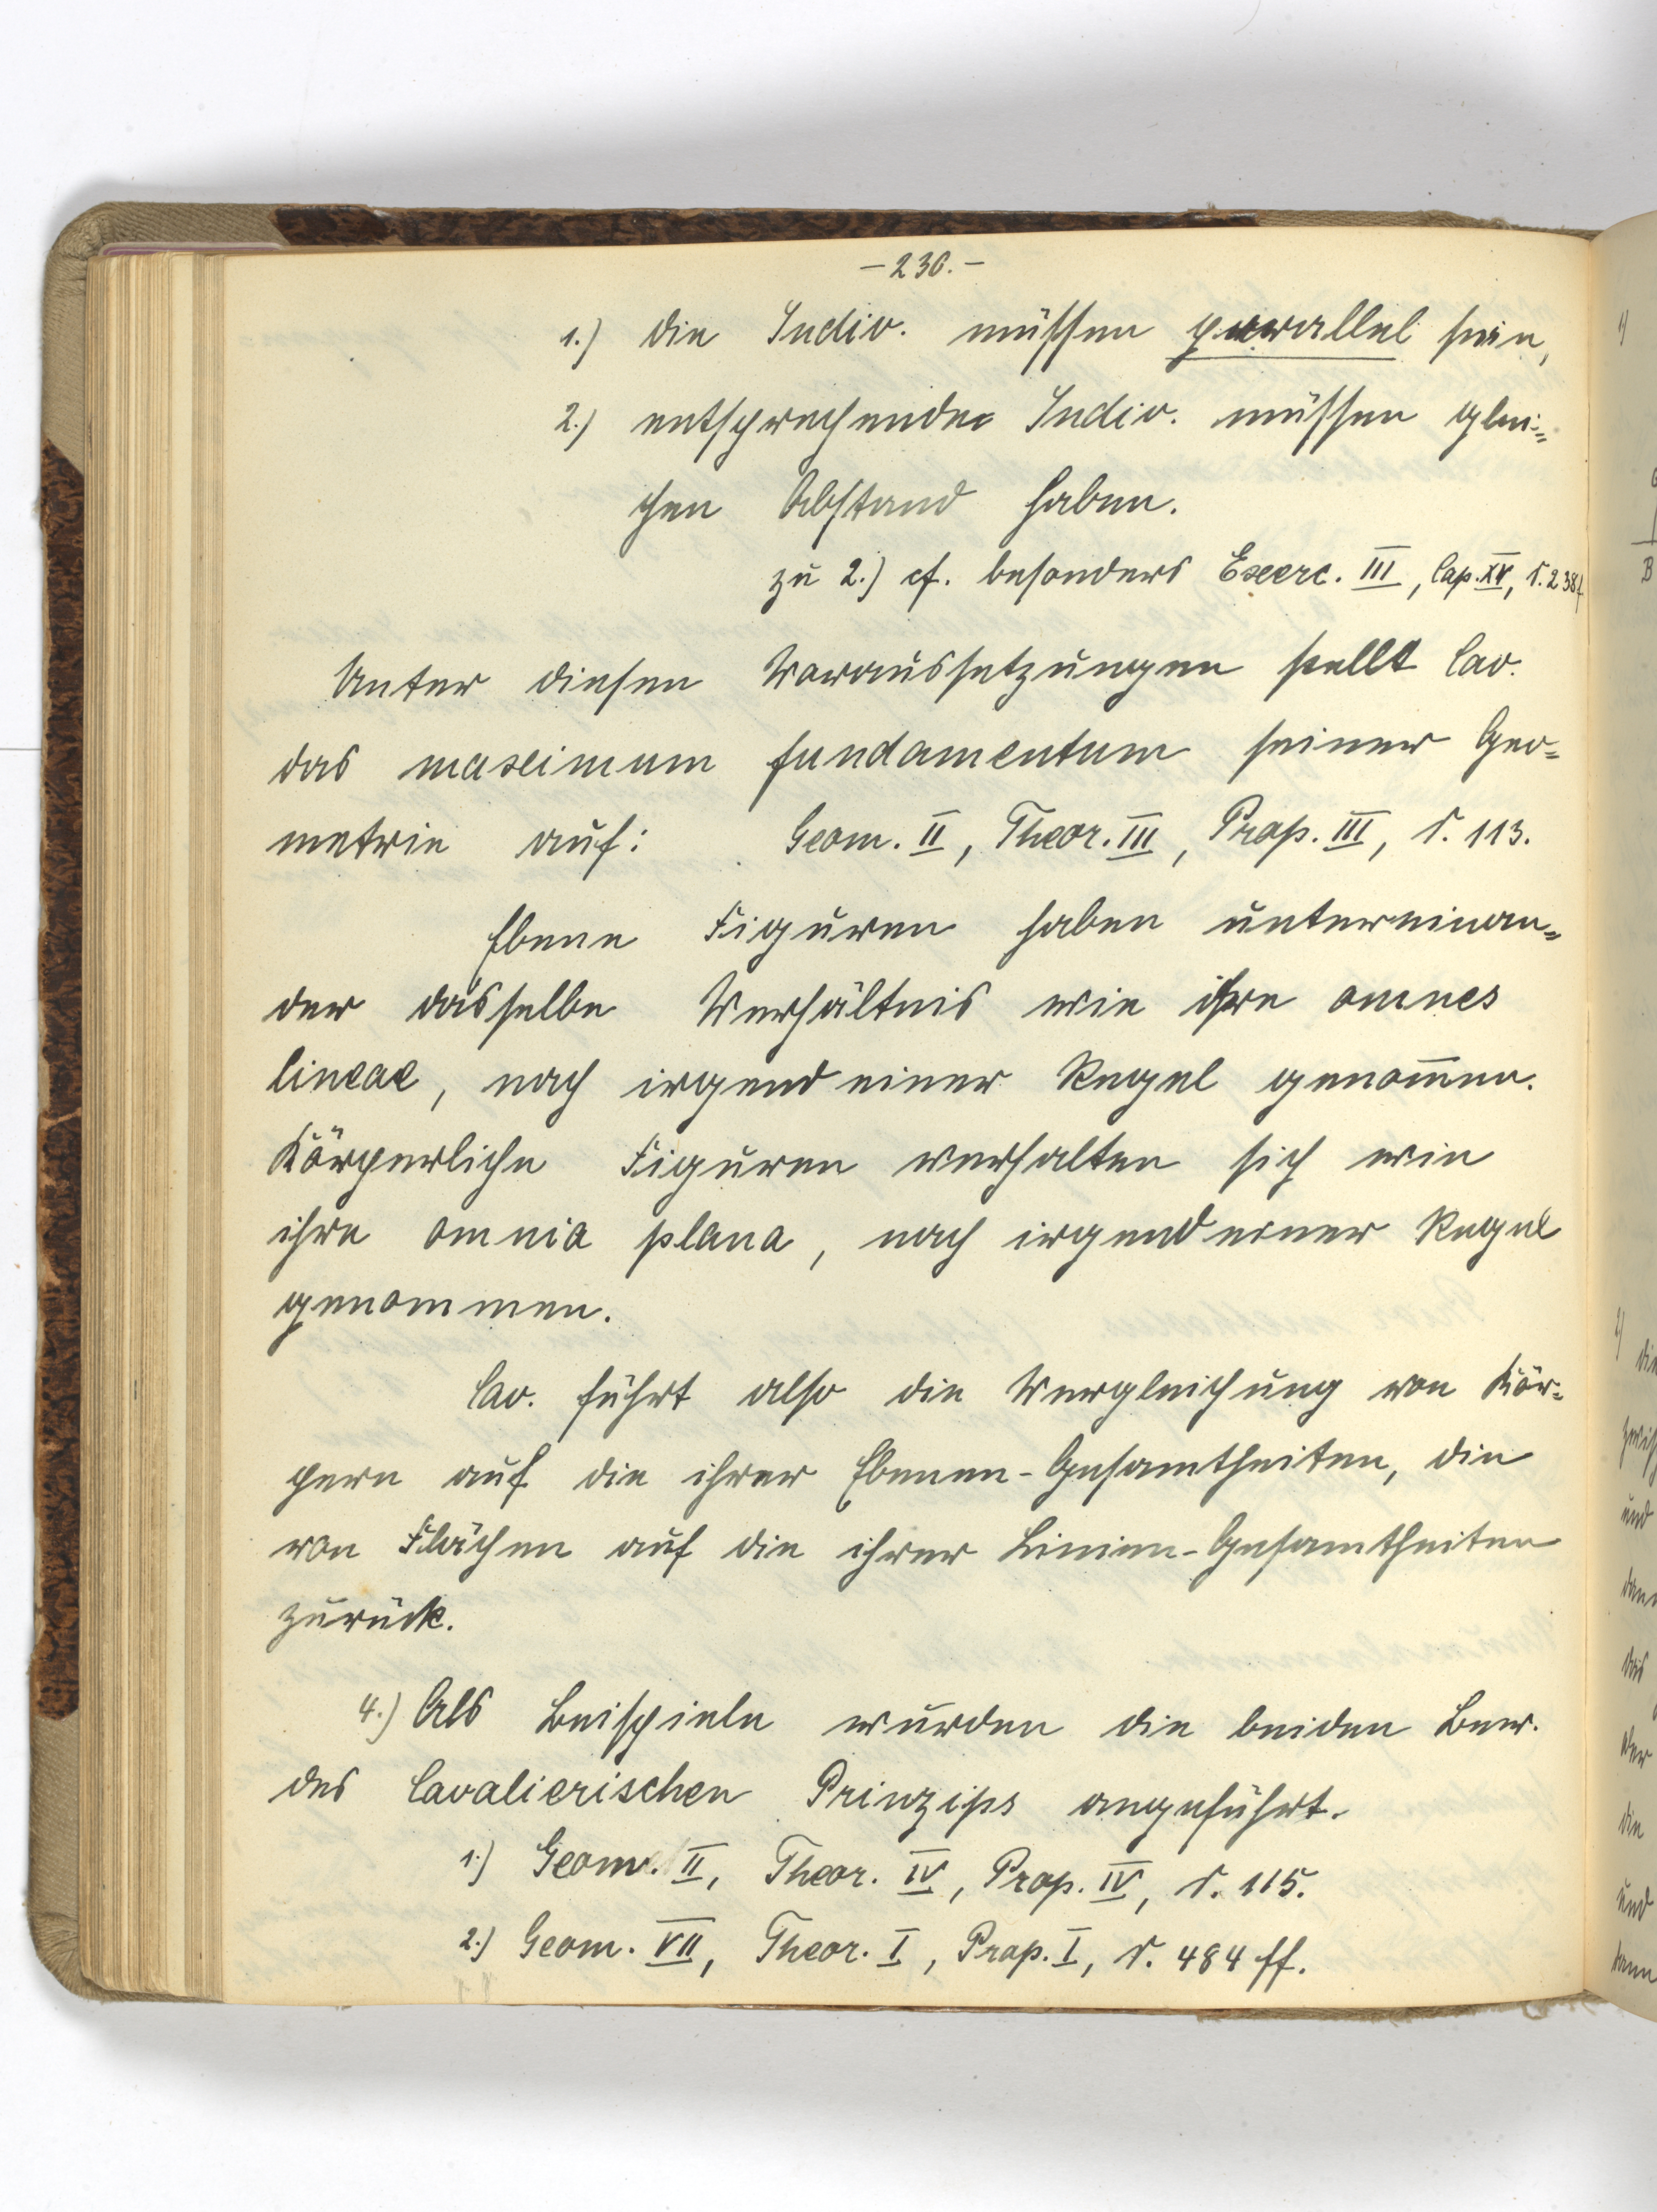 – 230. –
1.) die Indiv. müssen parallel sein,
2.) entsprechende Indiv. müssen glei=
chen Abstand haben.
zu 2.) cf. besonders Exerc. III, Cap. XV, S. 238f
Unter diesen Voraussetzungen stellt Cav.
das maximum fundamentum seiner Geo=
metrie auf: Geom. II, Theor. III, Prop. III, S. 113.
Ebene Figuren haben untereinan=
der dasselbe Verhältnis wie ihre omnes
lineae, nach irgend einer Regel genom̅en.
Körperliche Figuren verhalten sich wie
ihre omnia plana, nach irgend einer Regel
genommen.
Cav. führt also die Vergleichung von Kör=
pern auf die ihrer Ebenen-Gesamtheiten, die
von Flächen auf die ihrer Linien-Gesamtheiten
zurück.
4.) Als Beispiele wurden die beiden Bew.
des Cavalierischen Prinzips angeführt.
1.) Geom. II, Theor. IV, Prop. IV, S. 115.
2.) Geom. VII, Theor. I, Prop. I, S. 484 ff.